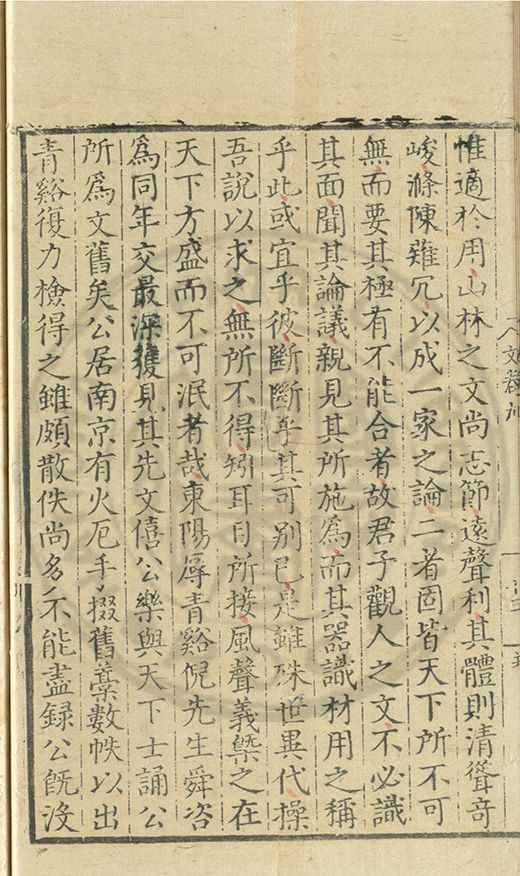 惟適於用山林之文尚志節遠聲利其體則清聳奇
峻滌陳薙冗以成一家之論二者固皆天下所不可
無而要其極有不能合者故君子觀人之文不必識
其面聞其論議親見其所施爲而其器識材用之稱
乎此或宜乎彼斷斷乎其可别已是雖殊世異代操
吾說以求之無所不得矧耳目所接風聲義槩之在
天下方盛而不可泯者哉東陽辱青谿倪先生舜咨
爲同年交最深獲見其先文僖公樂與天下士誦公
所爲文舊矣公居南京有火厄手掇舊藁數帙以出
青谿復力檢得之雖頗散佚尚多不能盡録公旣沒